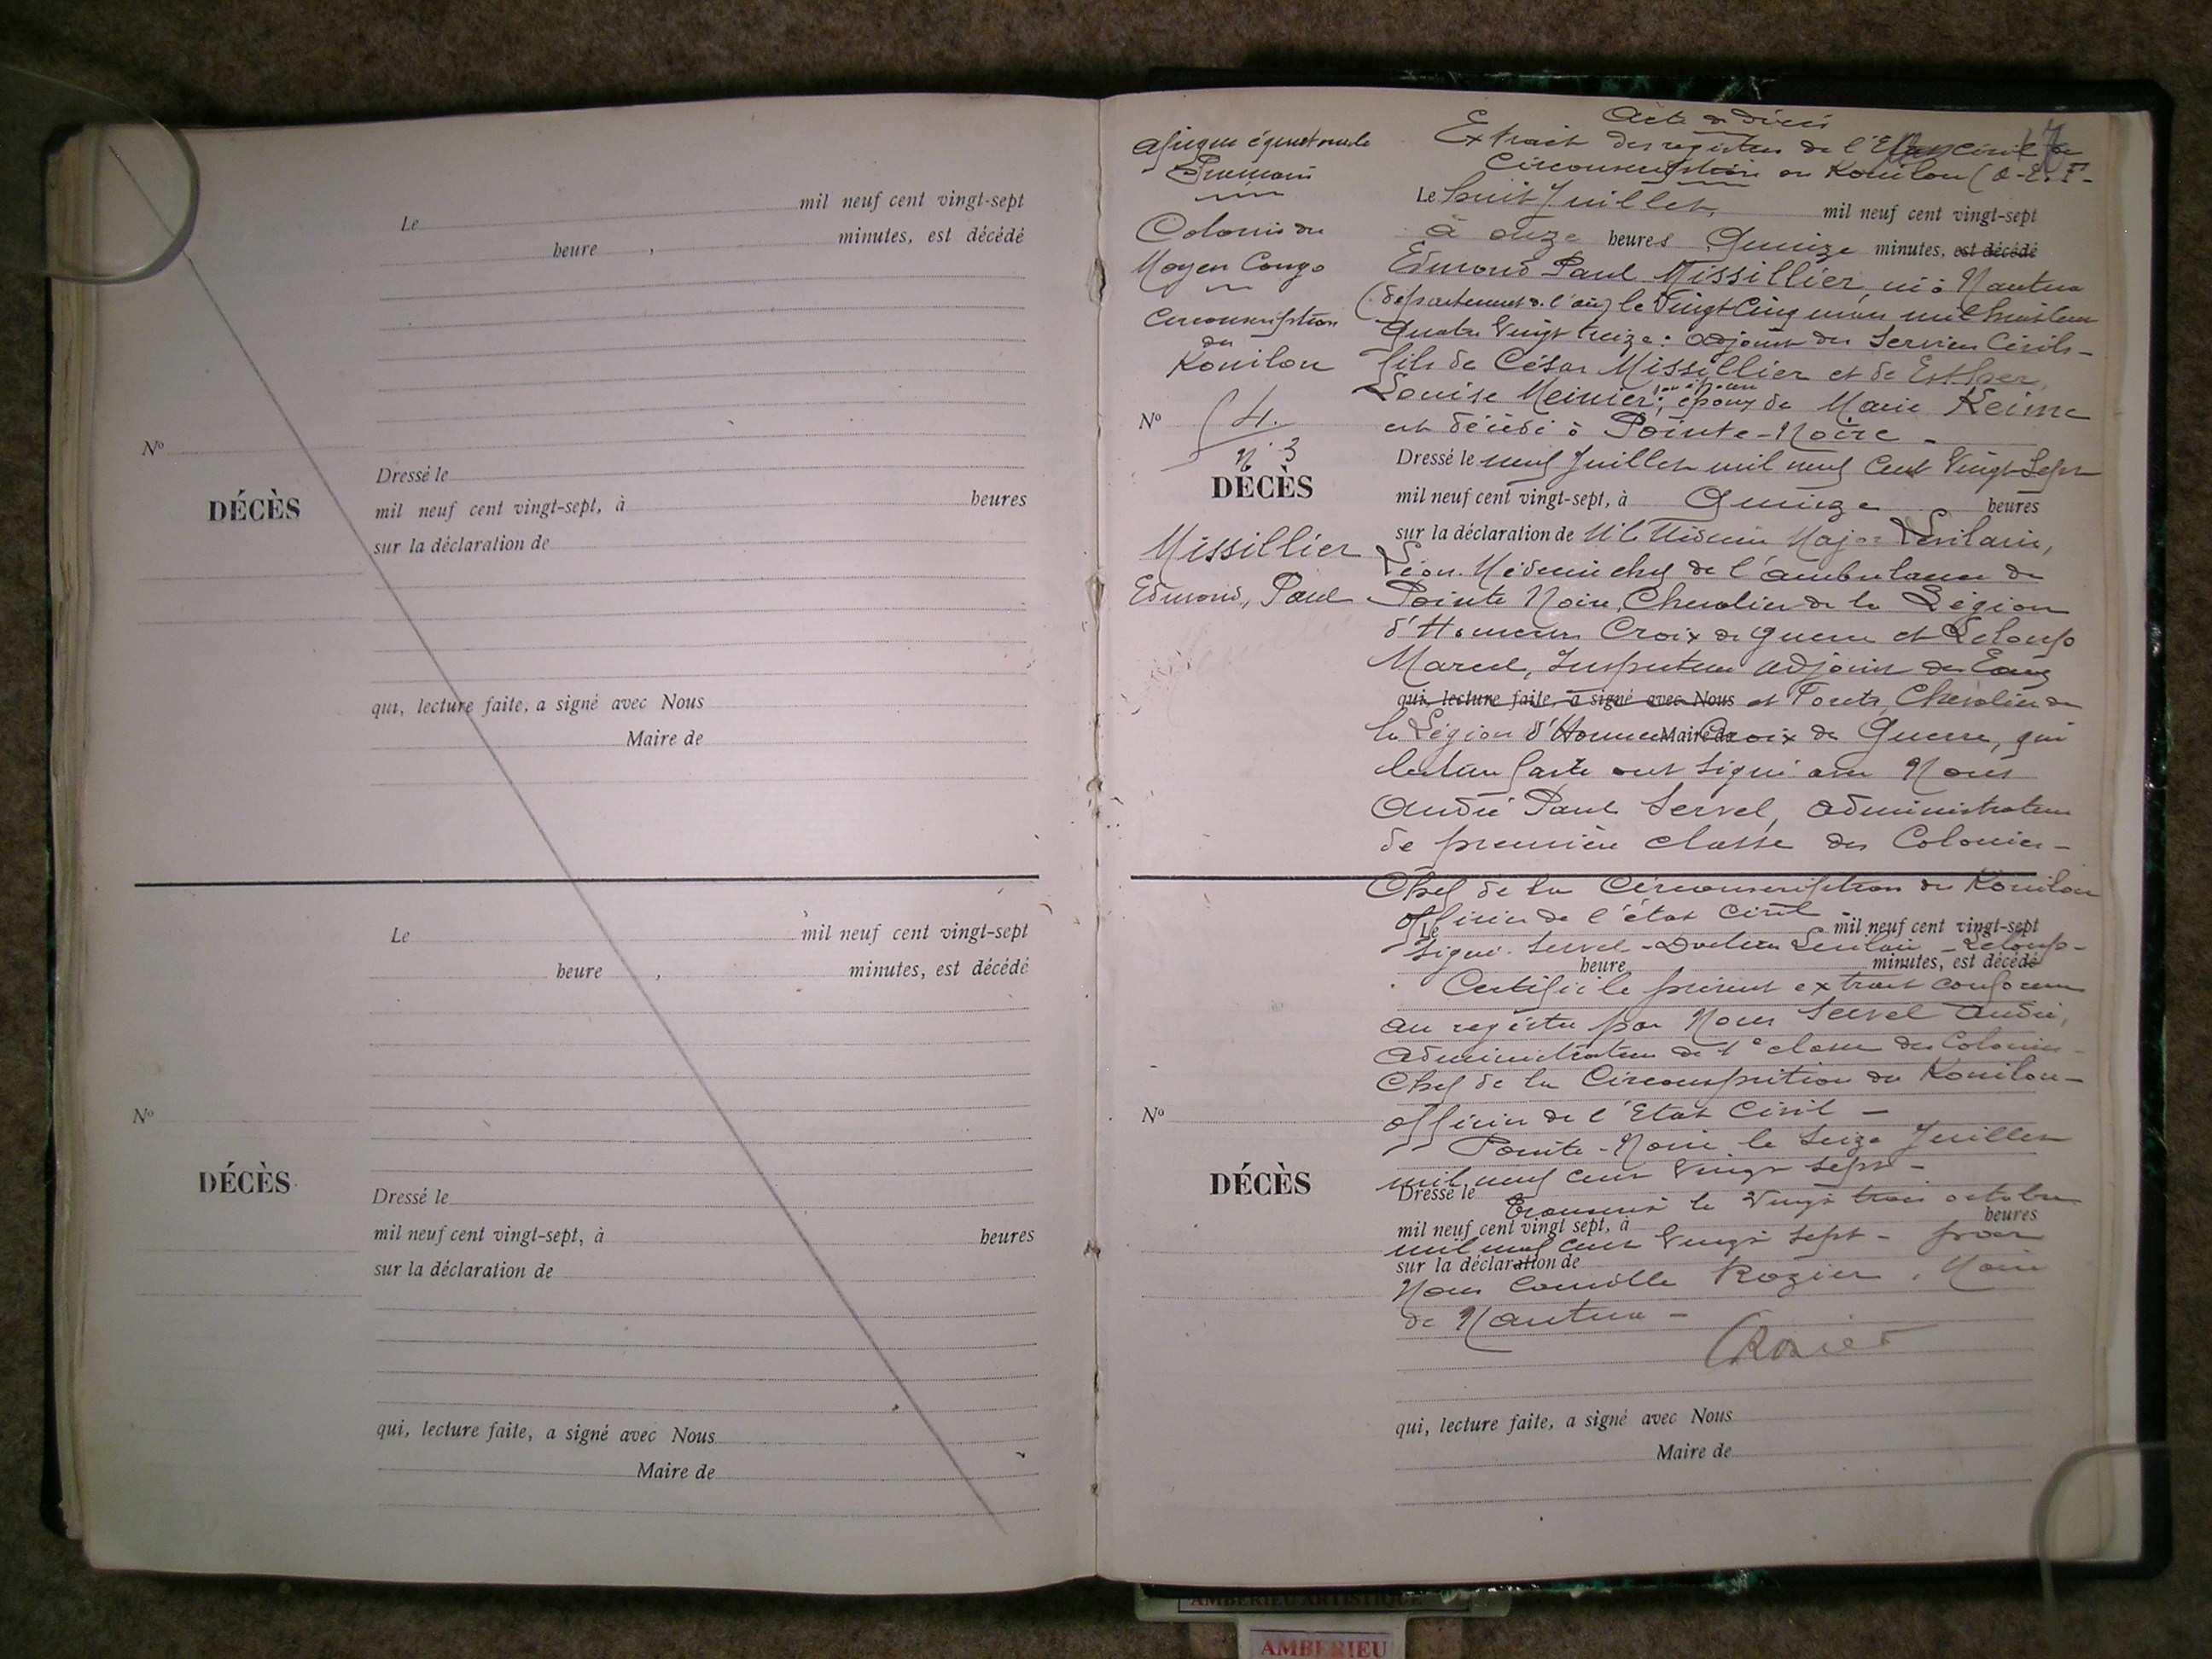 Le mil neuf cent vingt-sept
heure , minutes, est décédé
Nº
DÉCÈS
Dressé le
mil neuf cent vingt-sept, à heures
sur la déclaration de
qui, lecture faite, a signé avec Nous
Maire de
Le mil neuf cent vingt-sept
heure , minutes, est décédé
Nº
DÉCÈS
Dressé le
mil neuf cent vingt-sept, à heures
sur la déclaration de
qui, lecture faite, a signé avec Nous
Maire de
Afrique équatoriale
Colonie du
Moyen Congo
Circonscription
du
Kouilou
Nº 4.
Nº 3
DÉCÈS
Missillier
Edmond, Paul
Acte de décès
Extrait des registres de l'Etat civil de
Circonscription du Kouilou (A.E.F.
Le huit Juillet mil neuf cent vingt-sept
à onze heures Quinze minutes, est décédé
Edmond Paul Missillier, né à Nantua
(département de l'ain) le Vingt Cinq mil huit cent
Quatre Vingt treize : adjoint des Services Civils -
fils de César Missillier et de Esther,
Louise Meinier; époux de Marie Keime
est décédé à Pointe-Noire -
Dressé le neuf Juillet mil neuf Cent Vingt Sept
mil neuf cent vingt-sept, à Quinze heures
sur la déclaration de M le Médecin Major
Léon. Médecin chef de l'ambulance de
Pointe Noire, Chevalier de la Légion
d'Honneur Croix de guerre et Leloup
Marcel, Inspecteur adjoint des Eaux
qui, lecture faite, a signé avec Nous et Forêts, Chevalier de
la Légion d'Honneur Maire de Croix de Guerre, qui
lecture faite ont signé avec Nous
André Paul Servel, administrateur
de première classe des Colonies -
Chef de la Circonscription du Kouilou
officier de l'état Civil
Le mil neuf cent vingt-sept
Signé. Servel - Docteur - Leloup -
heure minutes, est décédé
Certifié le présent extrait conforme
au registre par Nous Servel André,
administrateur de 1e classe des Colonies -
Chef de la Circonscription du Kouilou -
officier de l'Etat Civil -
Nº
Pointe-Noire le Seize Juillet
mil neuf cent Vingt sept -
DÉCÈS
Dressé le
Transcrit le Vingt trois octobre
mil neuf cent vingt sept, à heures
mil neuf cent Vingt Sept - par
sur la déclaration de
Nous Camille Rozier, Maire
de Nantua -
CRozier
qui, lecture faite, a signé avec Nous
Maire de
AMBÉRIEU ARTISTIQUE
AMBÉRIEU